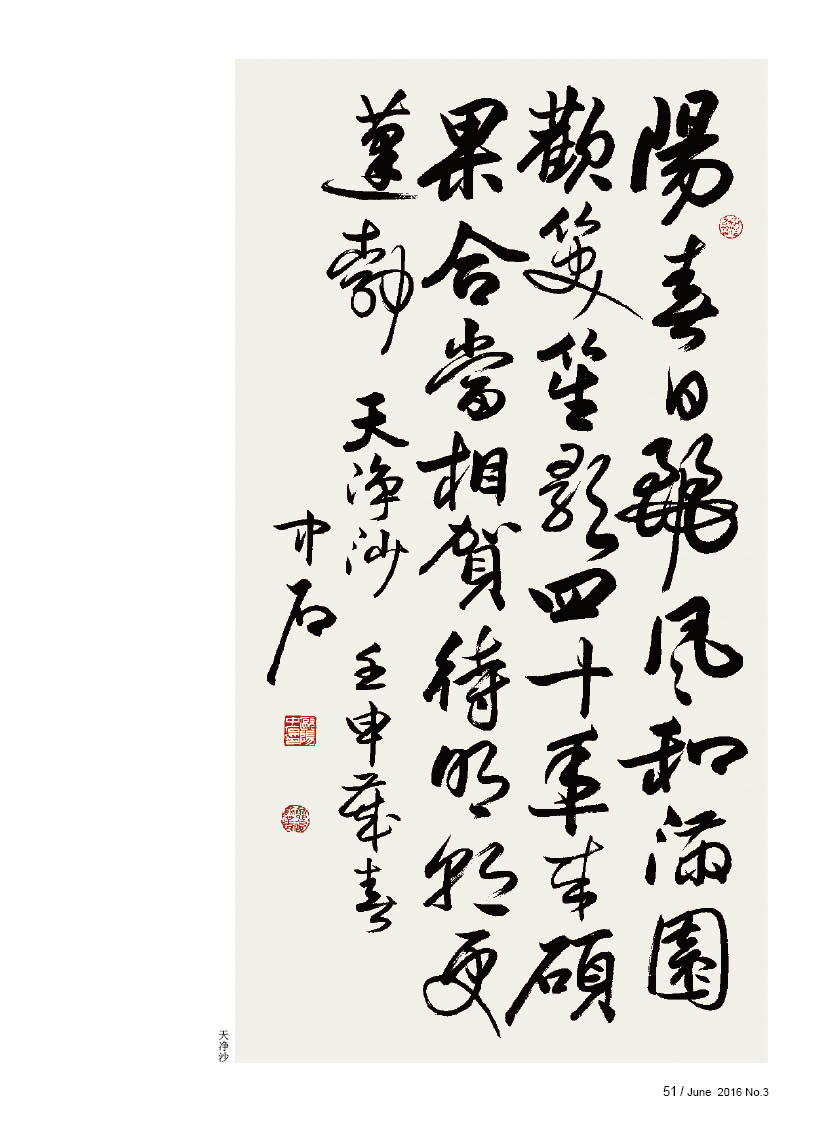 陽春日麗風和滿園
歡笑笙歌四十年來碩
果合當相賀待明朝更
蓬勃 天净沙 壬申歲春
中石
天净沙
51 / June 2016 No.3